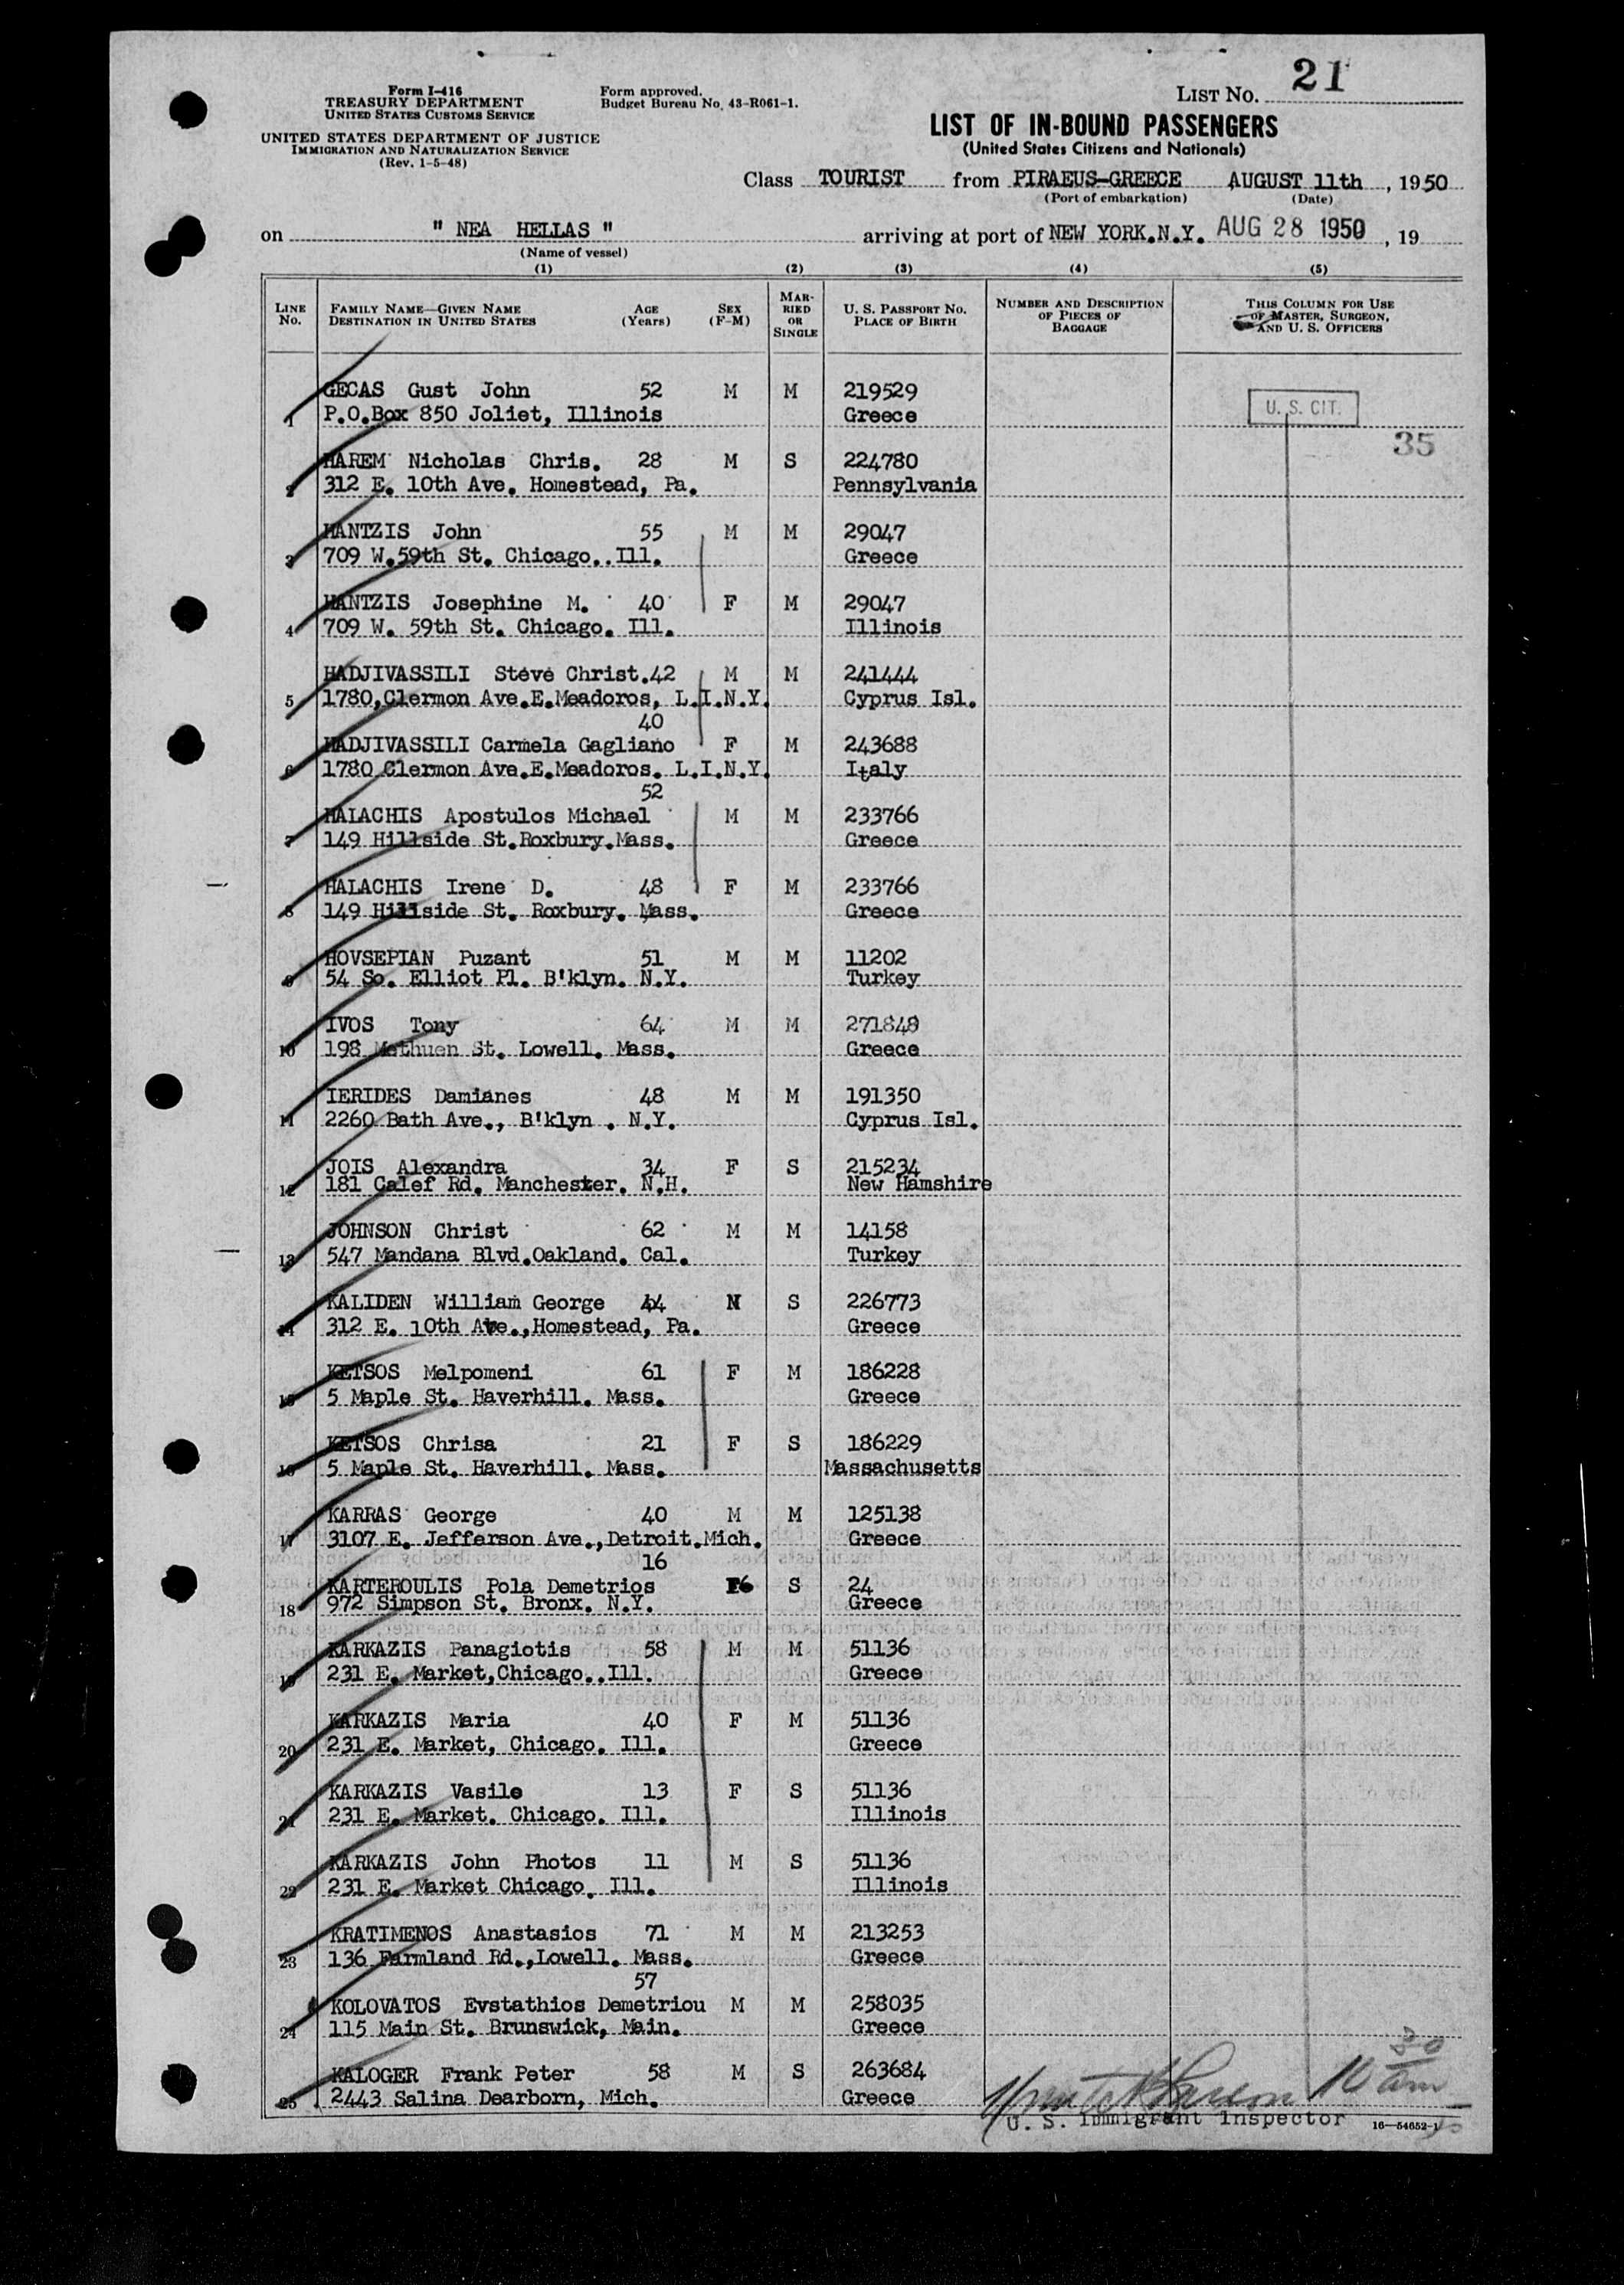 Form I-416
TREASURY DEPARTMENT
UNITED STATES CUSTOMS SERVICE
UNITED STATES DEPARTMENT OF JUSTICE
IMMIGRATION AND NATURALIZATION SERVICE
(Rev. 1-5-48)
Form approved.
Budget Bureau No. 43-R061-1.
LIST NO. 21
LIST OF IN-BOUND PASSENGERS
(United States Citizens and Nationals)
Class TOURIST from PIRAEUS-GREECE AUGUST 11th, 1950
(Port of embarkation) (Date)
on " NEA HELLAS " arriving at port of NEW YORK.N.Y. AUG 28 1950, 19
(Name of vessel)
(1) (2) (3) (4) (5)
LINE No. FAMILY NAME—GIVEN NAME DESTINATION IN UNITED STATES AGE (Years) SEX (F-M) MARRIED OR SINGLE U. S. PASSPORT NO. PLACE OF BIRTH NUMBER AND DESCRIPTION OF PIECES OF BAGGAGE THIS COLUMN FOR USE OF MASTER, SURGEON, AND U. S. OFFICERS
GECAS Gust John 52 M M 219529 U. S. CIT.
1 P.O.Box 850 Joliet, Illinois Greece
35
HAREM Nicholas Chris. 28 M S 224780
2 312 E. 10th Ave. Homestead, Pa. Pennsylvania
HANTZIS John 55 M M 29047
3 709 W.59th St. Chicago..Ill. Greece
HANTZIS Josephine M. 40 F M 29047
4 709 W. 59th St. Chicago. Ill. Illinois
HADJIVASSILI Steve Christ.42 M M 241444
5 1780,Clermon Ave.E.Meadoros, L.I.N.Y. Cyprus Isl.
40
HADJIVASSILI Carmela Gagliano F M 243688
6 1780 Clermon Ave.E.Meadoros. L.I.N.Y. Italy
52
HALACHIS Apostulos Michael M M 233766
7 149 Hillside St.Roxbury.Mass. Greece
HALACHIS Irene D. 48 F M 233766
8 149 Hillside St. Roxbury. Mass. Greece
HOVSEPIAN Puzant 51 M M 11202
9 54 So. Elliot Pl. B'klyn. N.Y. Turkey
IVOS Tony 64 M M 271848
10 198 Methuen St. Lowell. Mass. Greece
IERIDES Damianes 48 M M 191350
11 2260 Bath Ave., B'klyn . N.Y. Cyprus Isl.
JOIS Alexandra 34 F S 215234
12 181 Calef Rd. Manchester. N.H. New Hamshire
JOHNSON Christ 62 M M 14158
13 547 Mandana Blvd.Oakland. Cal. Turkey
KALIDEN William George 44 M S 226773
14 312 E. 10th Ave.,Homestead, Pa. Greece
KETSOS Melpomeni 61 F M 186228
15 5 Maple St. Haverhill. Mass. Greece
KETSOS Chrisa 21 F S 186229
16 5 Maple St. Haverhill. Mass. Massachusetts
KARRAS George 40 M M 125138
17 3107 E. Jefferson Ave.,Detroit.Mich. Greece
16
KARTEROULIS Pola Demetrios S 24
18 972 Simpson St. Bronx. N.Y. Greece
KARKAZIS Panagiotis 58 M M 51136
19 231 E. Market,Chicago..Ill. Greece
KARKAZIS Maria 40 F M 51136
20 231 E. Market, Chicago. Ill. Greece
KARKAZIS Vasile 13 F S 51136
21 231 E. Market. Chicago. Ill. Illinois
KARKAZIS John Photos 11 M S 51136
22 231 E. Market Chicago. Ill. Illinois
KRATIMENOS Anastasios 71 M M 213253
23 136 Farmland Rd.,Lowell. Mass. Greece
57
KOLOVATOS Evstathios Demetriou M M 258035
24 115 Main St. Brunswick, Main. Greece
KALOGER Frank Peter 58 M S 263684
25 2443 Salina Dearborn, Mich. Greece
10 30 am
U. S. Immigrant Inspector 16—54652-1